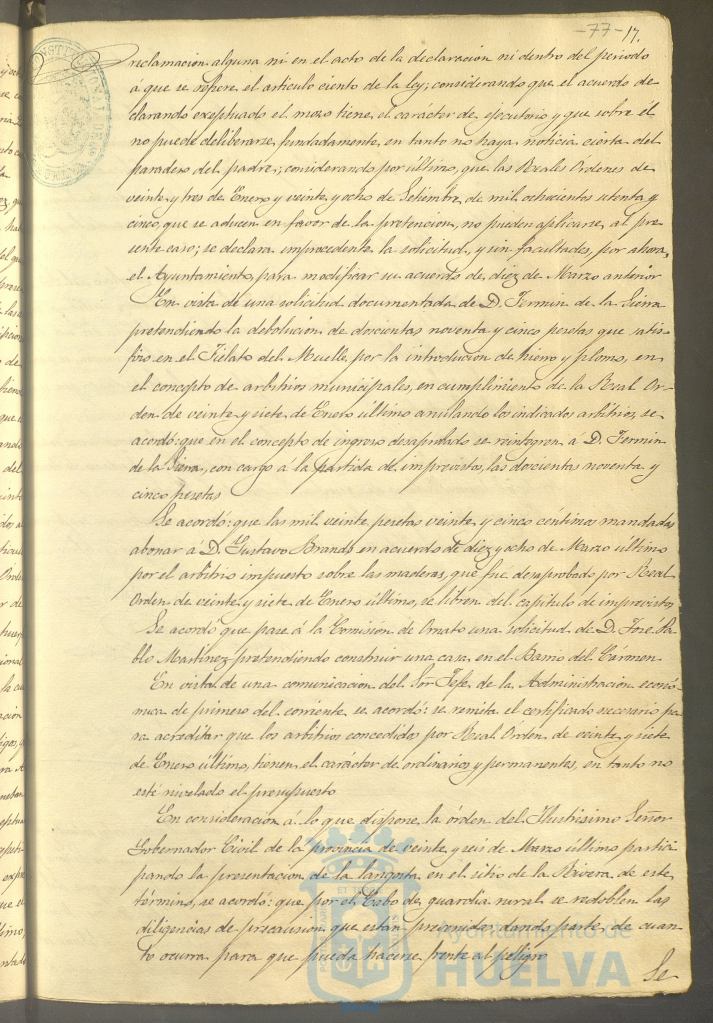 -77- 17.
reclamacion alguna ni en el acto de la declaracion ni dentro del periodo
á que se refiere el articulo ciento de la ley; considerando que el acuerdo de-
clarando exeptuado el mozo tiene el carácter de ejecutorio y que sobre él
no puede deliberarse fundadamente en tanto no haya noticia cierta del
paradero del padre; considerando por último, que las Reales Ordenes de
veinte y tres de Enero y veinte y ocho de Setiembre de mil ochocientos setenta y
cinco, que se aducen en favor de la pretencion, no pueden aplicarse al pre-
sente caso; se declara improcedente la solicitud, y sin facultades, por ahora,
el Ayuntamiento, para modificar su acuerdo de diez de Marzo anterior
En vista de una solicitud documentada de D. Fermin de la Sierra
pretendiendo la debolucion de doscientas noventa y cinco pesetas que satis-
fizo en el Fielato del Muelle, por la introducion de hierro y plomo, en
el concepto de arbitrios municipales, en cumplimiento de la Real Or-
den de veinte y siete de Enero último anulando los indicados arbitrios, se
acordó: que en el concepto de ingreso desaprobado se reintegren á D. Fermin
de la Sierra, con cargo á la partida de imprevistos, las doscientas noventa y
cinco pesetas
Se acordó: que las mil veinte pesetas veinte y cinco centimos mandadas
abonar á D. Gustavo Brandt en acuerdo de diez y ocho de Marzo último
por el arbitrio impuesto sobre las maderas, que fue desaprobado por Real
Orden de veinte y siete de Enero último, se libren del capitulo de imprevistos
Se acordó que pase á la Comision de Ornato una solicitud de D. José Pa-
blo Martinez pretendiendo construir una casa en el Barrio del Cármen
En vista de una comunicacion del Sor Jefe de la Administracion econó-
mica de primero del corriente se acordó: se remita el certificado necesario pa-
ra acreditar que los arbitrios concedidos por Real Orden de veinte y siete
de Enero último, tienen el carácter de ordinarios y permanentes, en tanto no
esté nivelado el presupuesto
En consideracion á lo que dispone la órden del Ilustrisimo Señor
Gobernador Civil de la provincia de veinte y seis de Marzo último partici-
pando la presentacion de la langosta en el sitio de la Rivera de este
término, se acordó: que por el Cabo de guardia rural se redoblen las
diligencias de precausion que estan prevenidas dando parte de cuan-
to ocurra para que pueda hacerse frente al peligro
Se
Ayuntamiento de
HUELVA